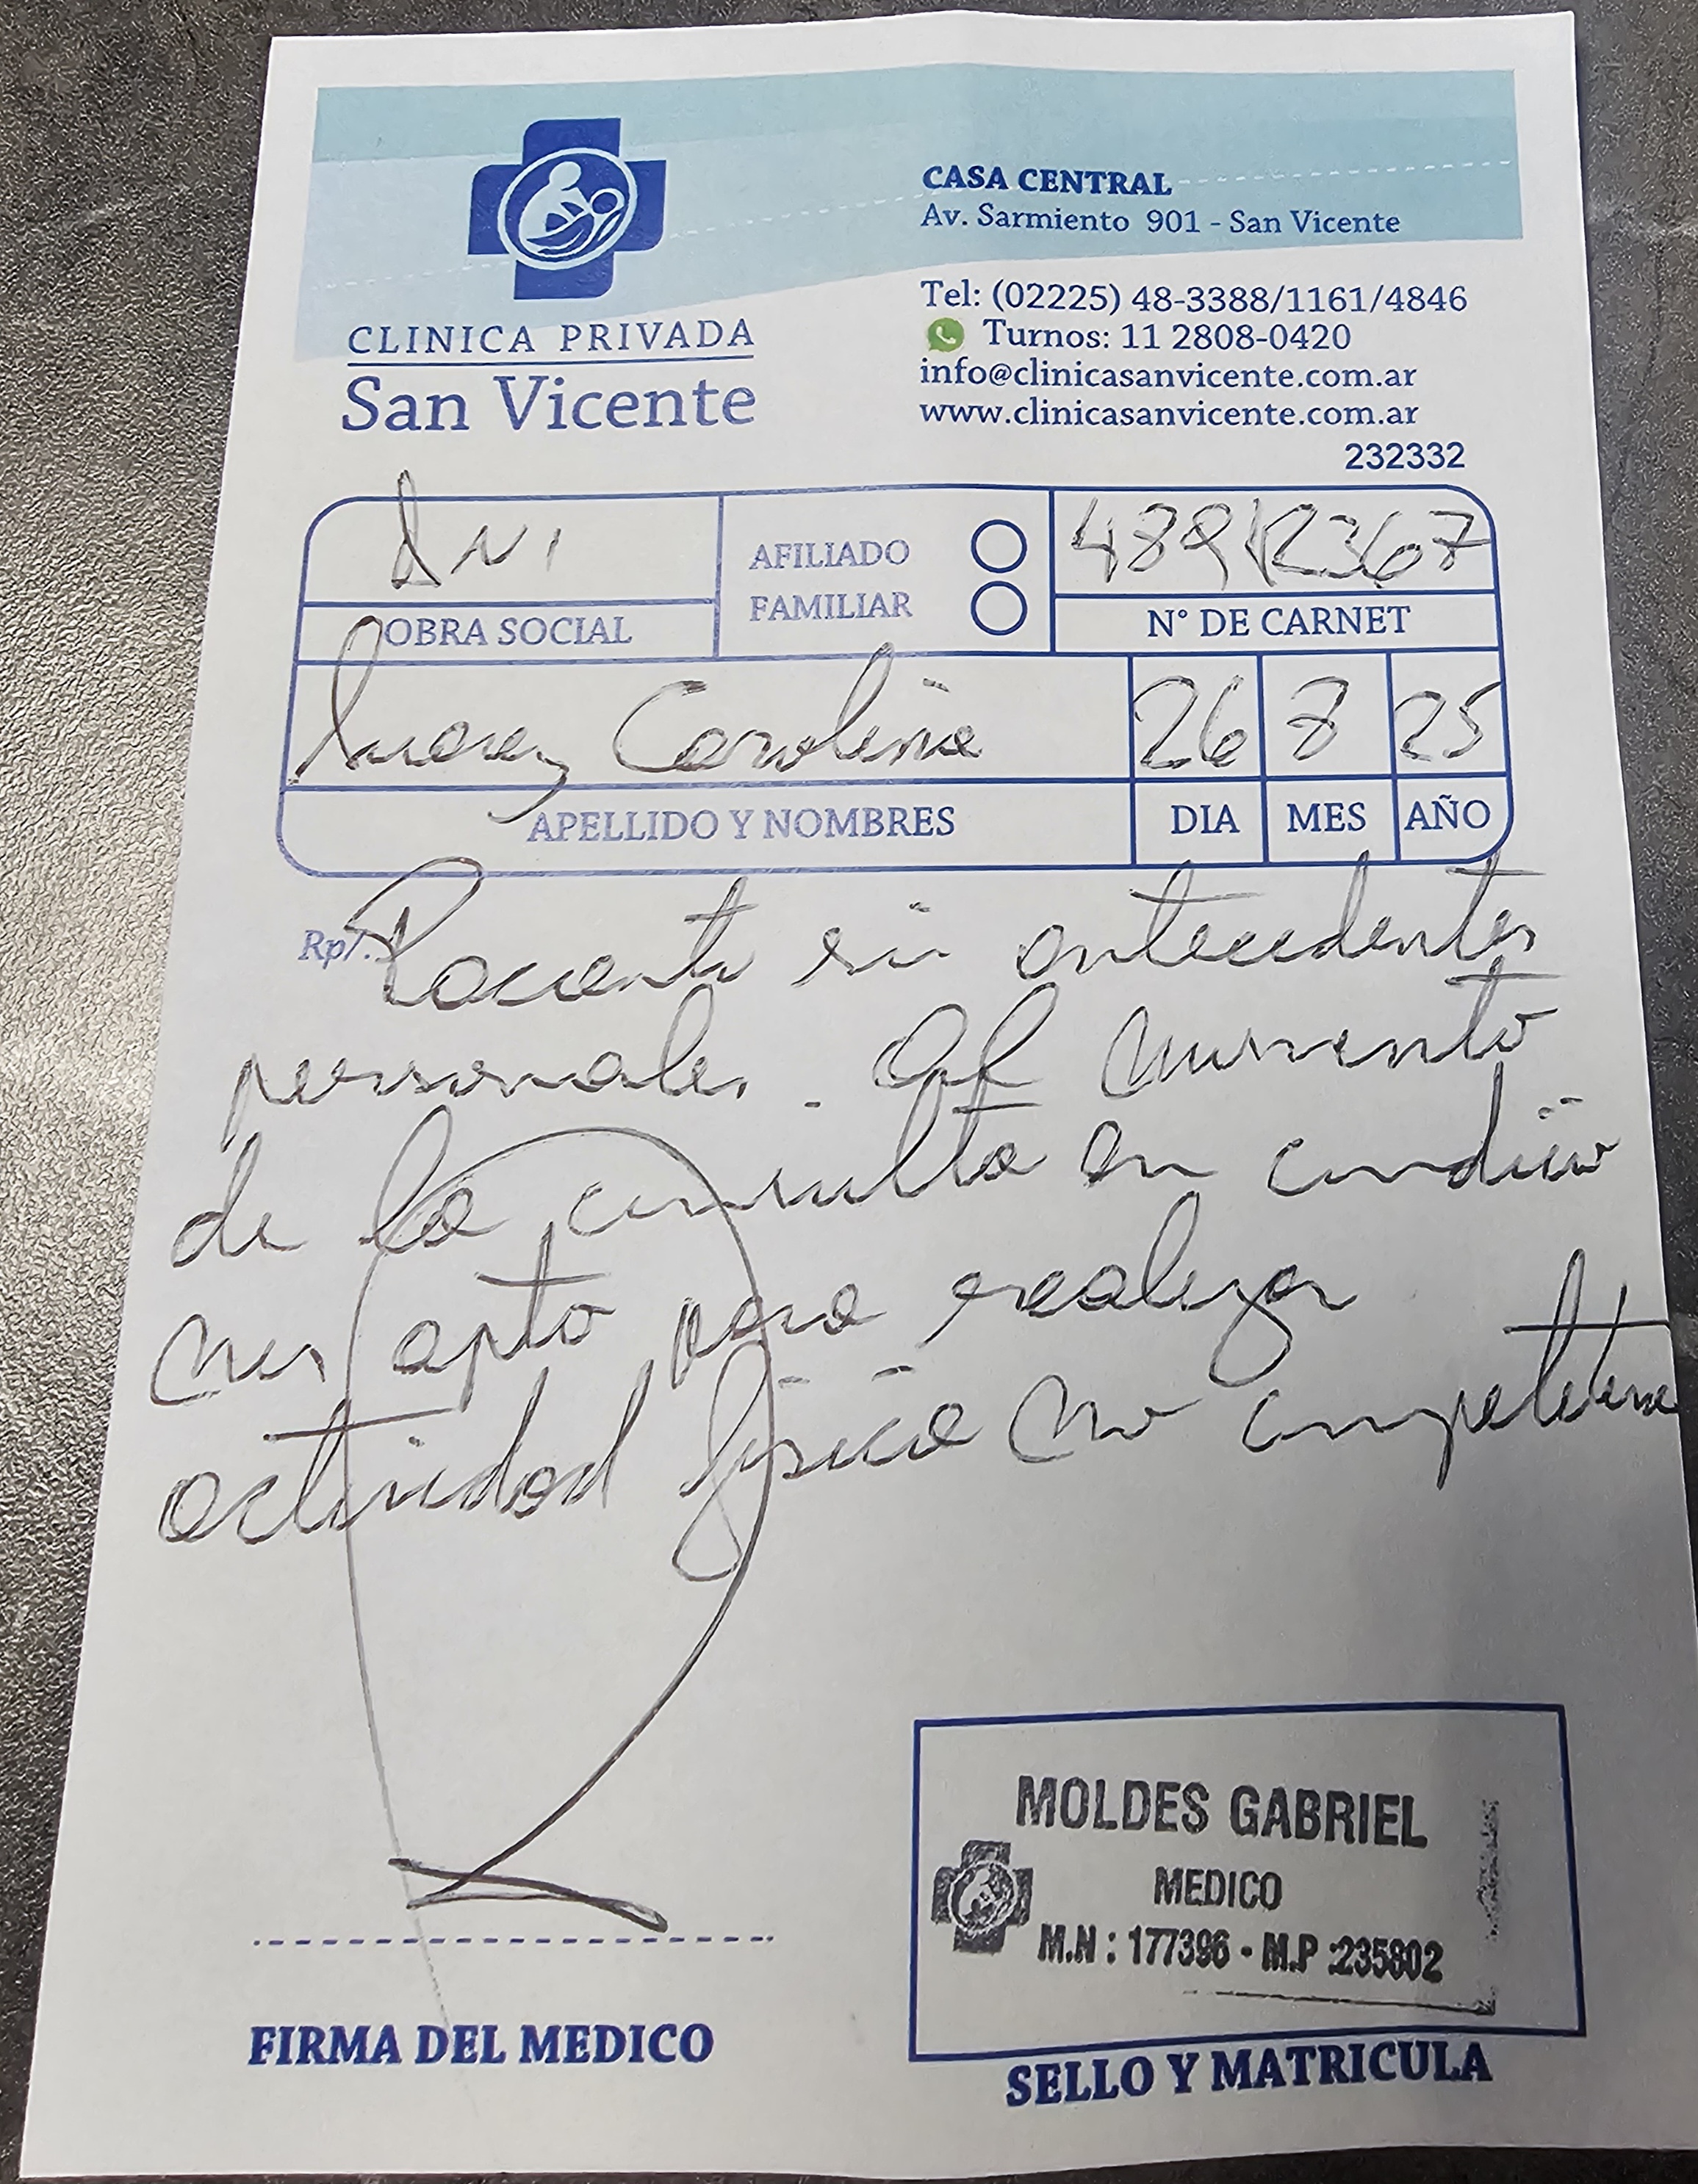 CASA CENTRAL
Av. Sarmiento 901 - San Vicente
Tel: (02225) 48-3388/1161/4846
Turnos: 11 2808-0420
info@clinicasanvicente.com.ar
www.clinicasanvicente.com.ar
CLINICA PRIVADA
San Vicente
232332
DNI
OBRA SOCIAL
AFILIADO
FAMILIAR
48912367
N° DE CARNET
Suarez Carolina
26 8 25
APELLIDO Y NOMBRES
DIA MES AÑO
Rp/.
Paciente sin antecedentes
personales. Al momento
de la consulta en condicio
nes apto para realizar
actividad fisica no competitiva
MOLDES GABRIEL
MEDICO
M.N : 177396 - M.P :235802
FIRMA DEL MEDICO
SELLO Y MATRICULA